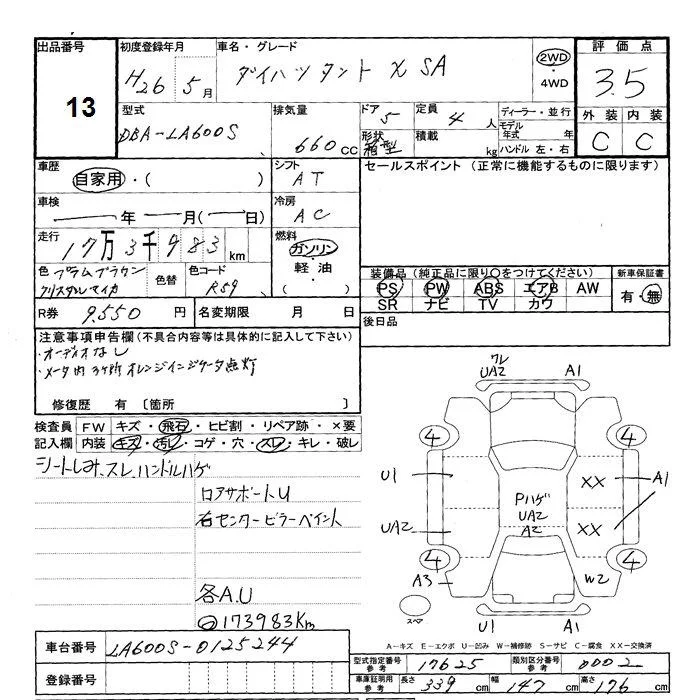 出品番号
13
初度登録年月
H26 5月
車名・グレード
ダイハツ タント X SA
2WD
・
4WD
評価点
3.5
型式
DBA-LA600S
排気量
660 cc
ドア 5
形状 箱型
定員 4 人
積載 kg
ディーラー・並行
モデル年式 年
ハンドル 左・右
外装 内装
C C
車歴
自家用・( )
シフト
AT
セールスポイント (正常に機能するものに限ります)
車検
年 月( 日)
冷房
AC
走行
17万3千983 km
燃料
ガソリン
・
軽油
・
色 プラムブラウン
クリスタルマイカ
色替
色コード
R59
装備品 (純正品に限り○をつけてください)
PS PW ABS エアB AW
SR ナビ TV カワ
新車保証書
有・無
R券 9,550 円
名変期限 月 日
後日品
注意事項申告欄(不具合内容等は具体的に記入して下さい)
・オーディオなし
・メータ内3ヶ所オレンジインジケータ点灯
修復歴 有 〔箇所 〕
検査員
記入欄
FW キズ・飛石・ヒビ割・リペア跡・×要
内装 キズ・汚レ・コゲ・穴・スレ・キレ・破レ
シートしみ、スレ、ハンドルハゲ
ロアサポートU
右センターピラーペイント
各A.U
173983Km
ワレ
UA2 A1
4 4
U1 XX A1
Pハゲ
UA2
A2
UA2 XX
4 4
A3 W2
スペア
U1 A1
A-キズ E-エクボ U-凹み W-補修跡 S-サビ C-腐食 XX-交換済
車台番号 LA600S-0125244
登録番号
型式指定番号 参考 17625
類別区分番号 参考 0002
車庫証明用 参考 長さ 339 cm 幅 147 cm 高さ 176 cm